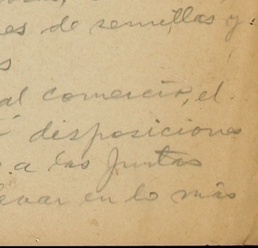 es de semillas y
s
al comercio, el
disposiciones
a las Juntas
levar en lo más